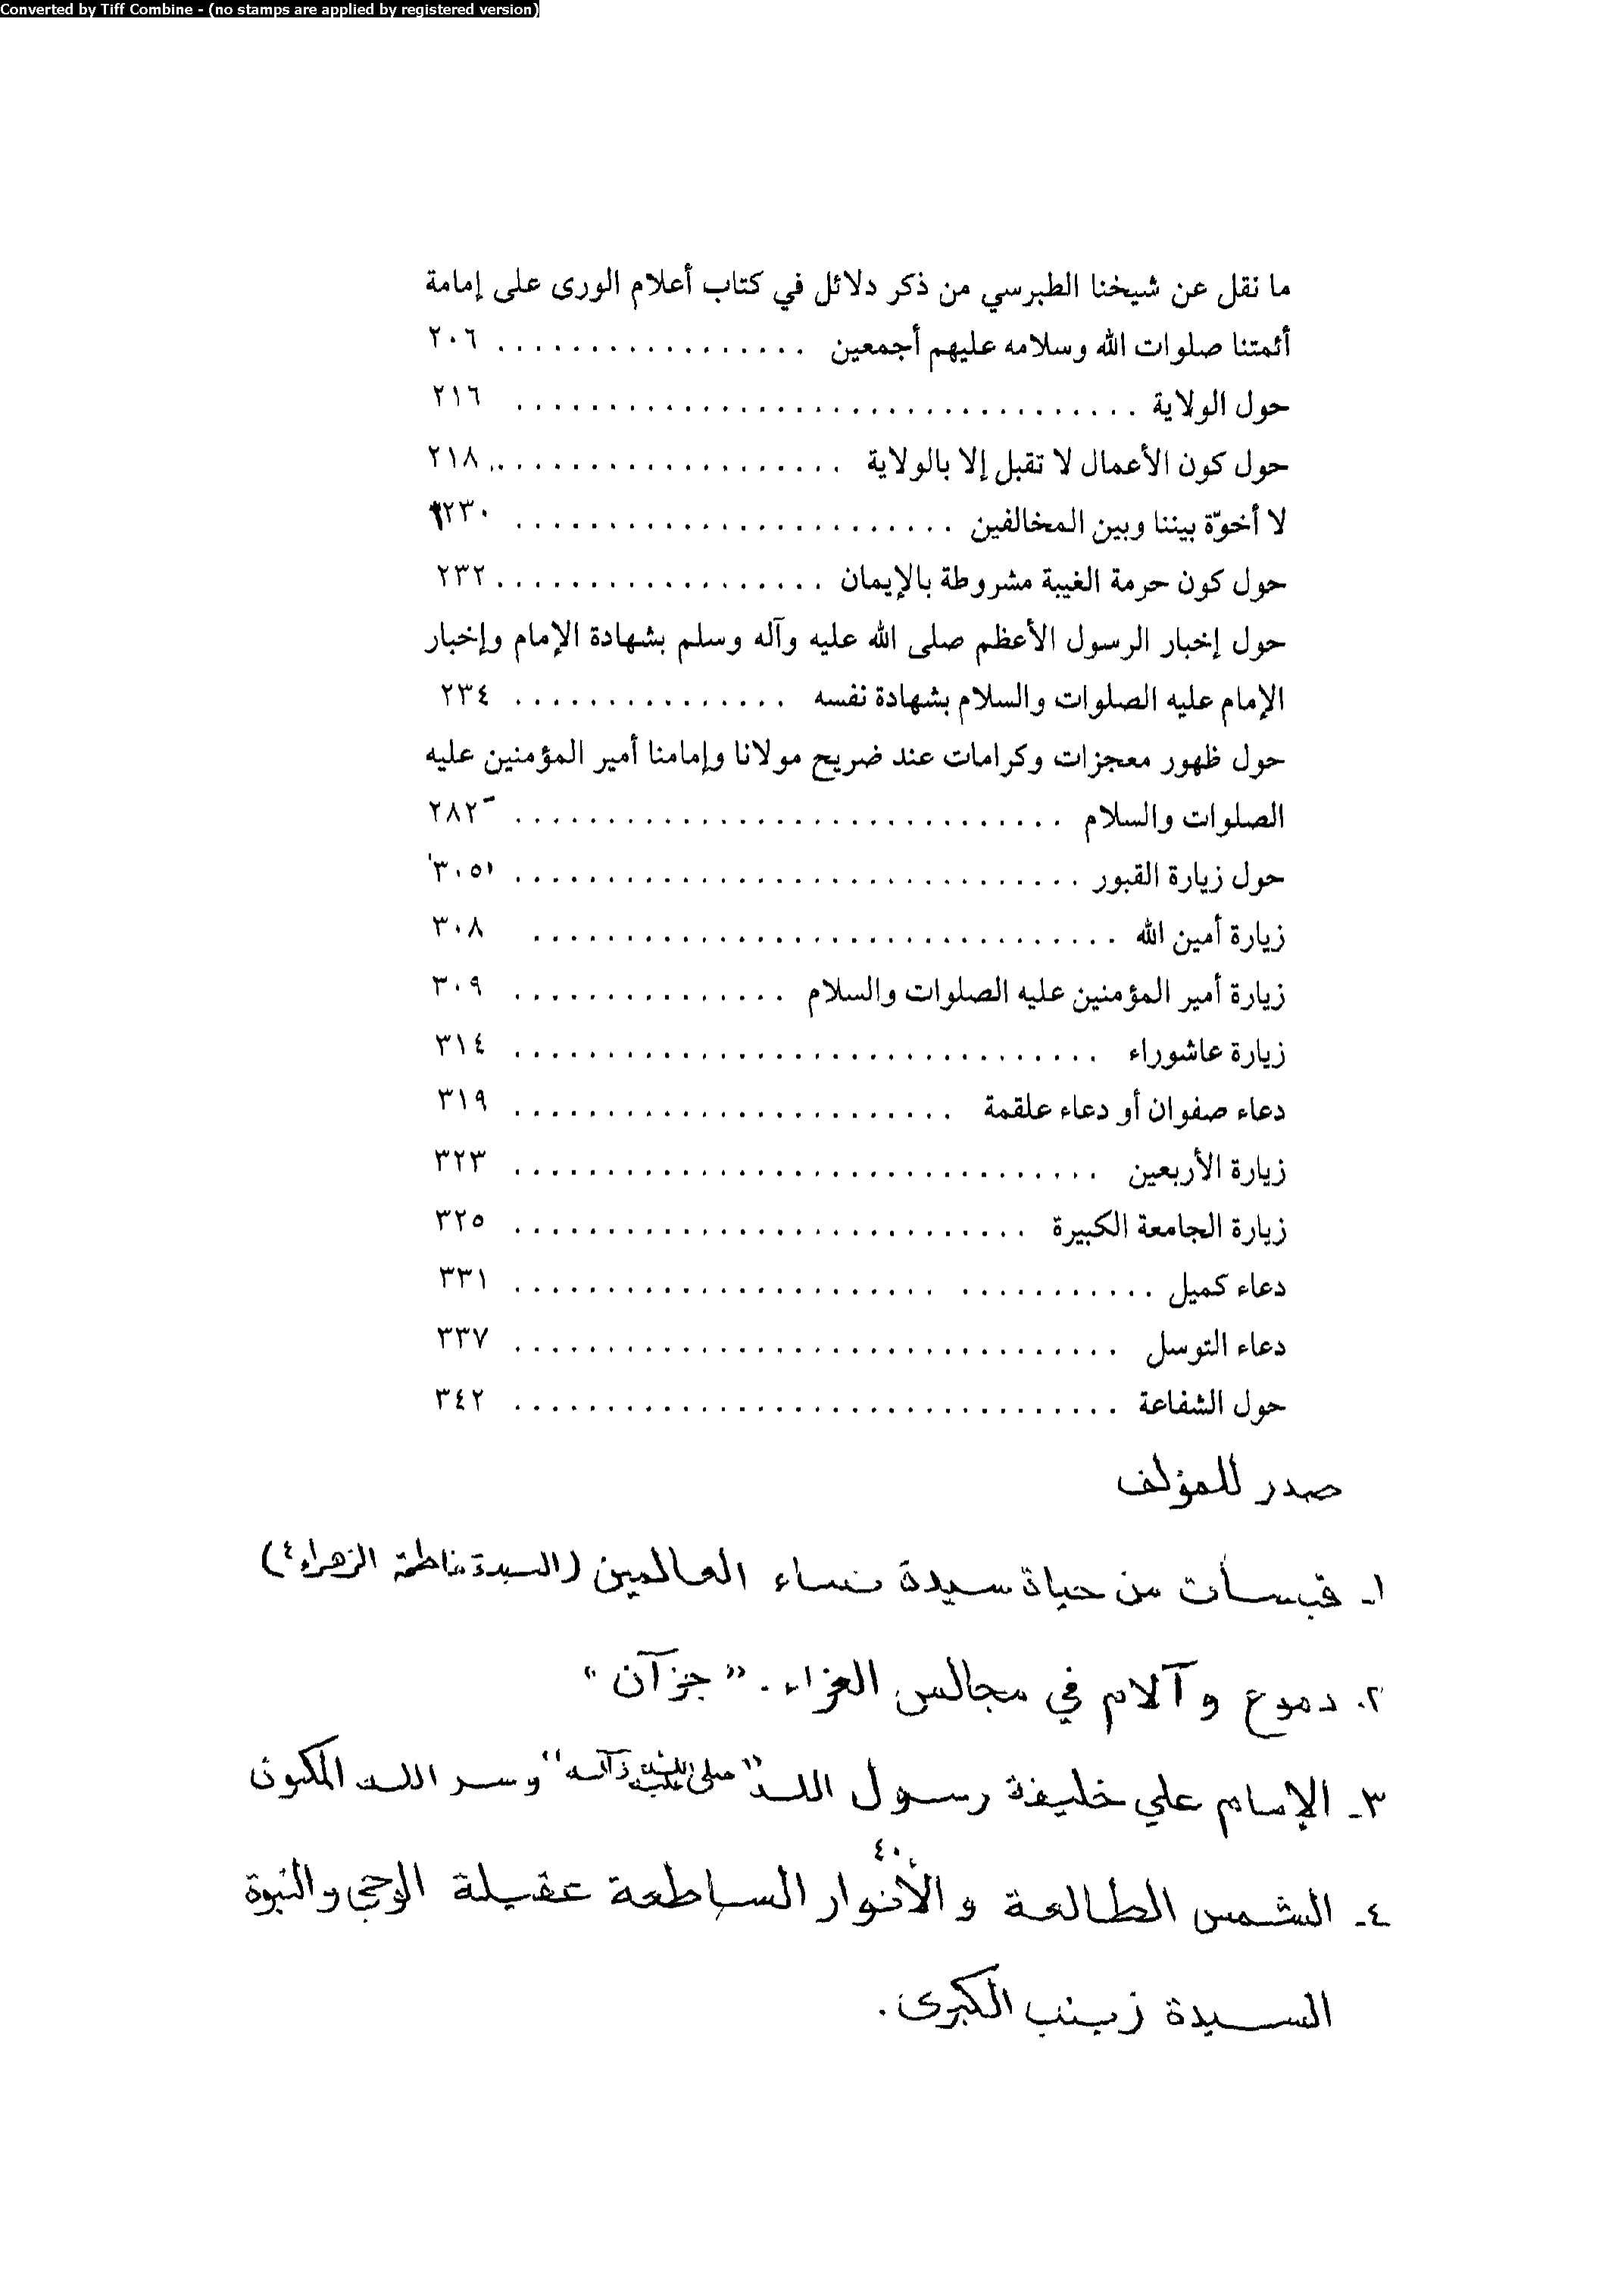 Converted by Tiff Combine - (no stamps are applied by registered version)
ما نقل عن شيخنا الطبرسي من ذكر دلائل في كتاب أعلام الورى على إمامة
أئمتنا صلوات الله وسلامه عليهم أجمعين . . . . . . . . . . . . . . . . . ٢٠٦
حول الولاية . . . . . . . . . . . . . . . . . . . . . . . . . . . . . . . . . ٢١٦
حول كون الأعمال لا تقبل إلا بالولاية . . . . . . . . . . . . . . . . . . . ٢١٨
لا أخوّة بيننا وبين المخالفين . . . . . . . . . . . . . . . . . . . . . . . . ٢٣٠
حول كون حرمة الغيبة مشروطة بالإيمان . . . . . . . . . . . . . . . . . . ٢٣٢
حول إخبار الرسول الأعظم صلى الله عليه وآله وسلم بشهادة الإمام وإخبار
الإمام عليه الصلوات والسلام بشهادة نفسه . . . . . . . . . . . . . . . ٢٣٤
حول ظهور معجزات وكرامات عند ضريح مولانا وإمامنا أمير المؤمنين عليه
الصلوات والسلام . . . . . . . . . . . . . . . . . . . . . . . . . . . . . ٢٨٢
حول زيارة القبور . . . . . . . . . . . . . . . . . . . . . . . . . . . . . . ٣٠٥
زيارة أمين الله . . . . . . . . . . . . . . . . . . . . . . . . . . . . . . . ٣٠٨
زيارة أمير المؤمنين عليه الصلوات والسلام . . . . . . . . . . . . . . . ٣٠٩
زيارة عاشوراء . . . . . . . . . . . . . . . . . . . . . . . . . . . . . . . ٣١٤
دعاء صفوان أو دعاء علقمة . . . . . . . . . . . . . . . . . . . . . . . . ٣١٩
زيارة الأربعين . . . . . . . . . . . . . . . . . . . . . . . . . . . . . . . ٣٢٣
زيارة الجامعة الكبيرة . . . . . . . . . . . . . . . . . . . . . . . . . . . ٣٢٥
دعاء كميل . . . . . . . . . . . . . . . . . . . . . . . . . . . . . . . . . ٣٣١
دعاء التوسل . . . . . . . . . . . . . . . . . . . . . . . . . . . . . . . . ٣٣٧
حول الشفاعة . . . . . . . . . . . . . . . . . . . . . . . . . . . . . . . . ٣٤٢
صدر للمؤلف
١- قبسات من حياة سيدة نساء العالمين (السيدة فاطمة الزهراء ع)
٢- دموع وآلام في مجالس العزاء. "جزآن"
٣- الإمام علي خليفة رسول الله "صلى الله عليه وآله" وسر الله المكنون
٤- الشمس الطالعة والأنوار الساطعة عقيلة الوحي والنبوة
السيدة زينب الكبرى.